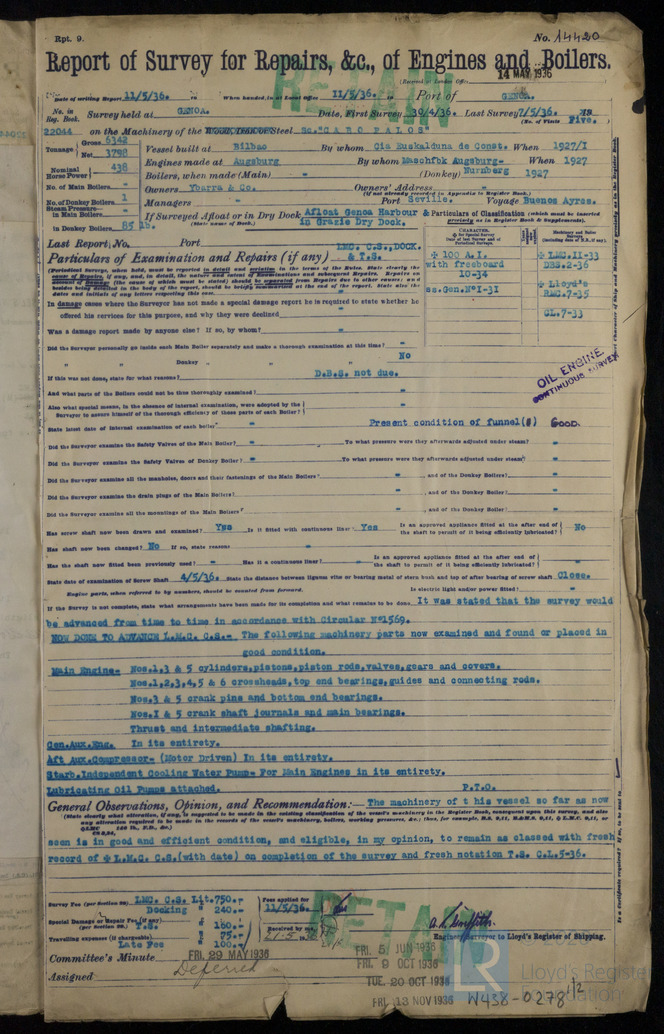 Rpt. 9.
No. 14420
Report of Survey for Repairs, &c., of Engines and Boilers.
14 MAY 1936
(Received at London Office
RETAIN
Date of writing Report 11/5/36. When handed in at Local Office 11/5/36. Port of GENOA.
No. in Reg. Book. Survey held at GENOA. Date, First Survey 30/4/36. Last Survey 7/5/36. 19
(No. of Visits Five.
22044 on the Machinery of the Steel Sc."CABO PALOS"
Tonnage Gross 6342 Net 3798
Vessel built at Bilbao By whom Cia Euskalduna de Const. When 1927/I
Engines made at Augsburg By whom Maschfbk Augsburg- When 1927
Nominal Horse Power 438
Boilers, when made (Main) - (Donkey) Nurnberg 1927
No. of Main Boilers -
Owners Ybarra & Co. Owners' Address -
(If not already recorded in Appendix to Register Book.)
No. of Donkey Boilers 1
Managers - Port Seville. Voyage Buenos Ayres.
Steam Pressure- in Main Boilers -
in Donkey Boilers 85 lb.
If Surveyed Afloat or in Dry Dock Afloat Genoa Harbour & in Grazie Dry Dock.
(State name of Dock.)
Particulars of Classification (which must be inserted precisely as in Register Book & Supplements).
Last Report, No. Port
LMC. C.S., DOCK. & T.S.
Particulars of Examination and Repairs (if any)
✠ 100 A.I.
with freeboard
10-34
ss.Gen.Nº1-31
✠ LMC.11-33
DBS.2-36
✠ Lloyd's
RMC.7-35
CL.7-33
In damage cases where the Surveyor has not made a special damage report he is required to state whether he
offered his services for this purpose, and why they were declined
Was a damage report made by anyone else? If so, by whom? -
Did the Surveyor personally go inside each Main Boiler separately and make a thorough examination at this time? -
" " Donkey " " " " No
If this was not done, state for what reasons? D.B.S. not due.
OIL ENGINE
CONTINUOUS SURVEY
And what parts of the Boilers could not be thus thoroughly examined? -
Also what special means, in the absence of internal examination, were adopted by the
Surveyor to assure himself of the thorough efficiency of those parts of each Boiler? -
State latest date of internal examination of each boiler - Present condition of funnel(s) GOOD.
Did the Surveyor examine the Safety Valves of the Main Boiler? - To what pressure were they afterwards adjusted under steam? -
Did the Surveyor examine the Safety Valves of Donkey Boiler? - To what pressure were they afterwards adjusted under steam? -
Did the Surveyor examine all the manholes, doors and their fastenings of the Main Boilers? - , and of the Donkey Boilers? -
Did the Surveyor examine the drain plugs of the Main Boilers? - , and of the Donkey Boiler? -
Did the Surveyor examine all the mountings of the Main Boilers? - , and of the Donkey Boiler? -
Has screw shaft now been drawn and examined? Yes Is it fitted with continuous liner? Yes Is an approved appliance fitted at the after end of the shaft to permit of it being efficiently lubricated? No
Has shaft now been changed? No If so, state reasons -
Has the shaft now fitted been previously used? - Has it a continuous liner? - Is an approved appliance fitted at the after end of the shaft to permit of it being efficiently lubricated? -
State date of examination of Screw Shaft 4/5/36. State the distance between lignum vitæ or bearing metal of stern bush and top of after bearing of screw shaft Close.
Engine parts, when referred to by numbers, should be counted from forward. Is electric light and/or power fitted? -
If the Survey is not complete, state what arrangements have been made for its completion and what remains to be done. It was stated that the survey would
be advanced from time to time in accordance with Circular Nº1569.
NOW DONE TO ADVANCE L.M.C. C.S.- The following machinery parts now examined and found or placed in
good condition.
Main Engine- Nos.1,3 & 5 cylinders,pistons,piston rods,valves,gears and covers.
Nos.1,2,3,4,5 & 6 crossheads,top end bearings,guides and connecting rods.
Nos.3 & 5 crank pins and bottom end bearings.
Nos.1 & 5 crank shaft journals and main bearings.
Thrust and intermediate shafting.
Gen.Aux.Eng. In its entirety.
Aft Aux.Compressor- (Motor Driven) In its entirety.
Starb.Independent Cooling Water Pump- For Main Engines in its entirety.
Lubricating Oil Pumps attached. P.T.O.
General Observations, Opinion, and Recommendation:- The machinery of t his vessel so far as now
seen is in good and efficient condition, and eligible, in my opinion, to remain as classed with fresh
record of ✠ L.M.C. C.S.(with date) on completion of the survey and fresh notation T.S. C.L.5-36.
Survey Fee (per Section 29) LMC. C.S. Lit.750.-
Docking 240.-
Special Damage or Repair Fee (if any) (per Section 29.) T.S. 160.-
Travelling expenses (if chargeable) 75.-
Late Fee 100.-
Fees applied for 11/5/36.
Received by me,
RETAIN
A. R. Griffith.
Engineer Surveyor to Lloyd's Register of Shipping.
Committee's Minute FRI. 29 MAY 1936
FRI. 5 JUN 1936
Deferred
FRI. 9 OCT 1936
Assigned
TUE. 20 OCT 1936
FRI. 13 NOV 1936
Lloyd's Register
Foundation
W438-0278 1/2